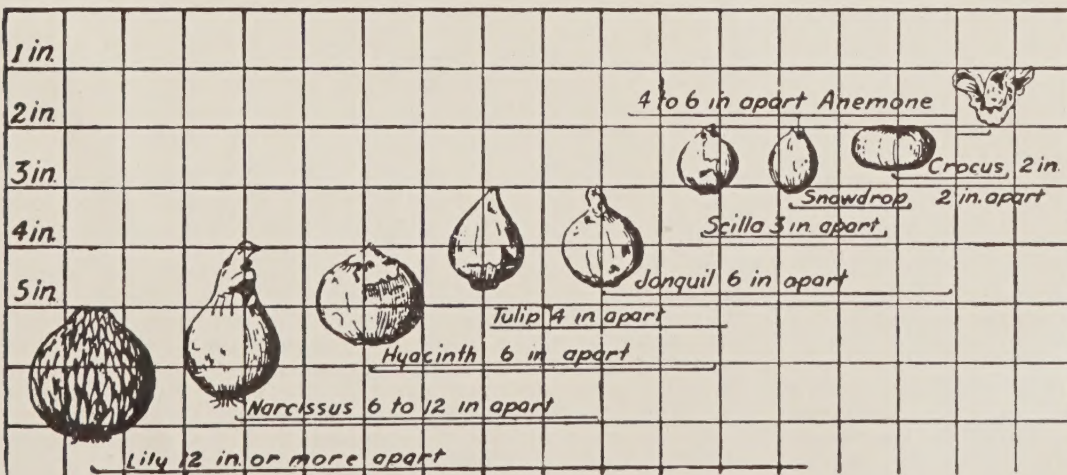 1 in.
2 in.
4 to 6 in apart Anemone
3 in.
Crocus, 2 in.
Snowdrop 2 in. apart
4 in.
Scilla 3 in apart
5 in
Jonquil 6 in apart
Tulip 4 in apart
Hyacinth 6 in apart
Narcissus 6 to 12 in apart
Lily 12 in. or more apart